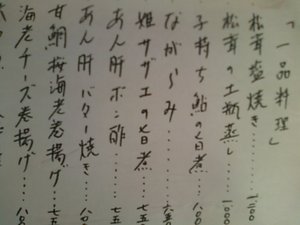 「一品料理」
松茸塩焼き……一二〇〇
松茸の土瓶蒸し…一〇〇〇
子持ち鮎の旨煮……八〇
ながらみ……六五
姫サザエの旨煮……七五
あん肝ポン酢……七五
あん肝バター焼き…八〇
甘鯛桜海老巻揚げ…七五
海老チーズ巻揚げ…八〇